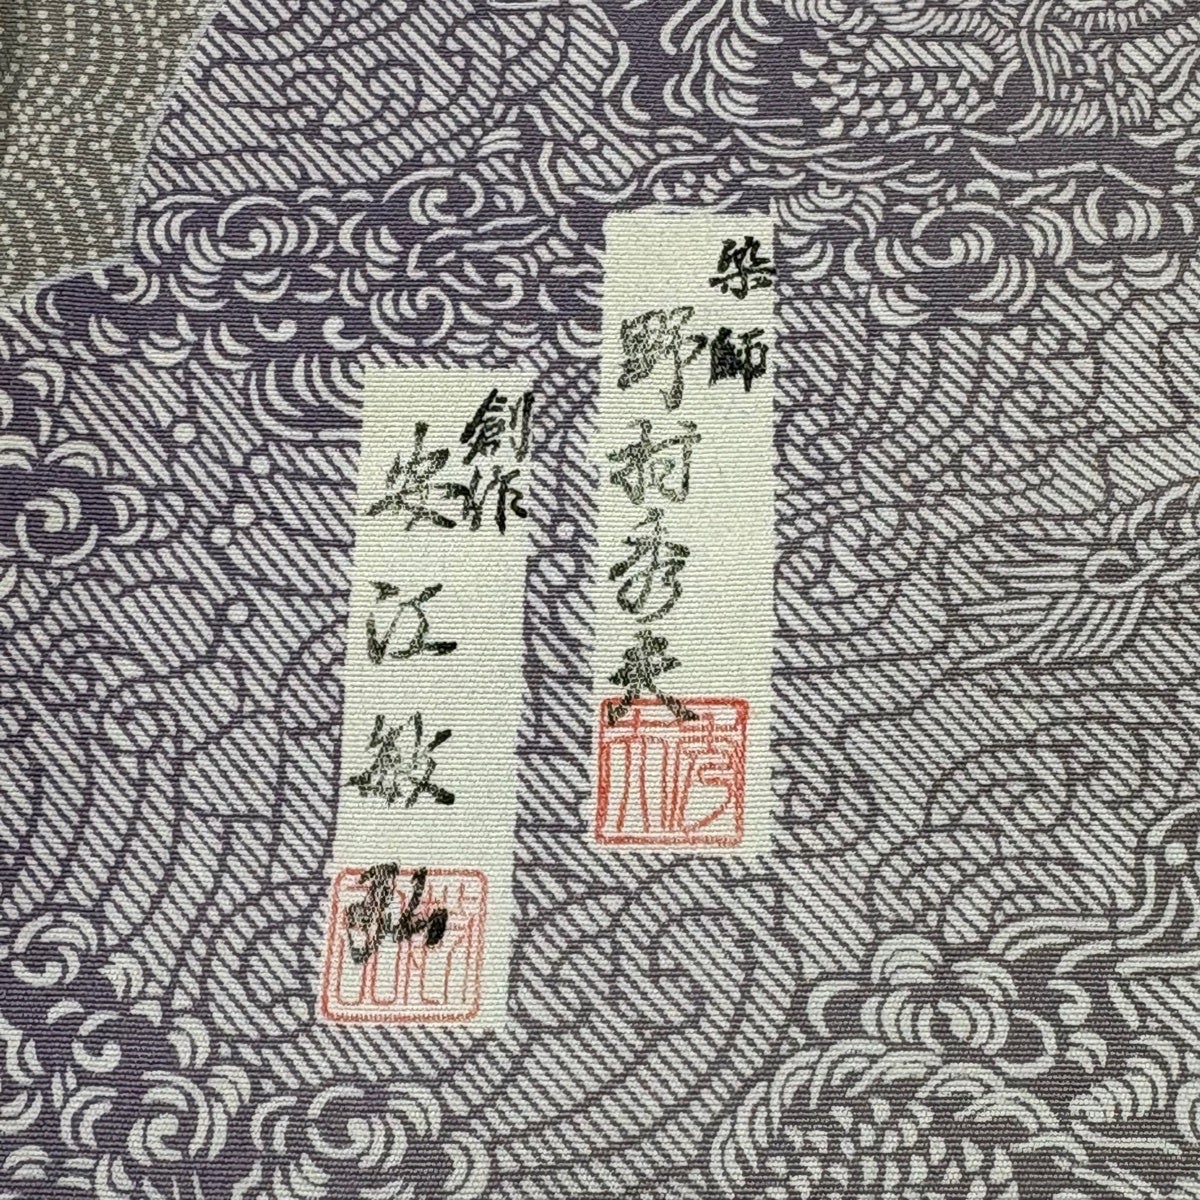 染師
野村秀夫
創作
安江敏弘